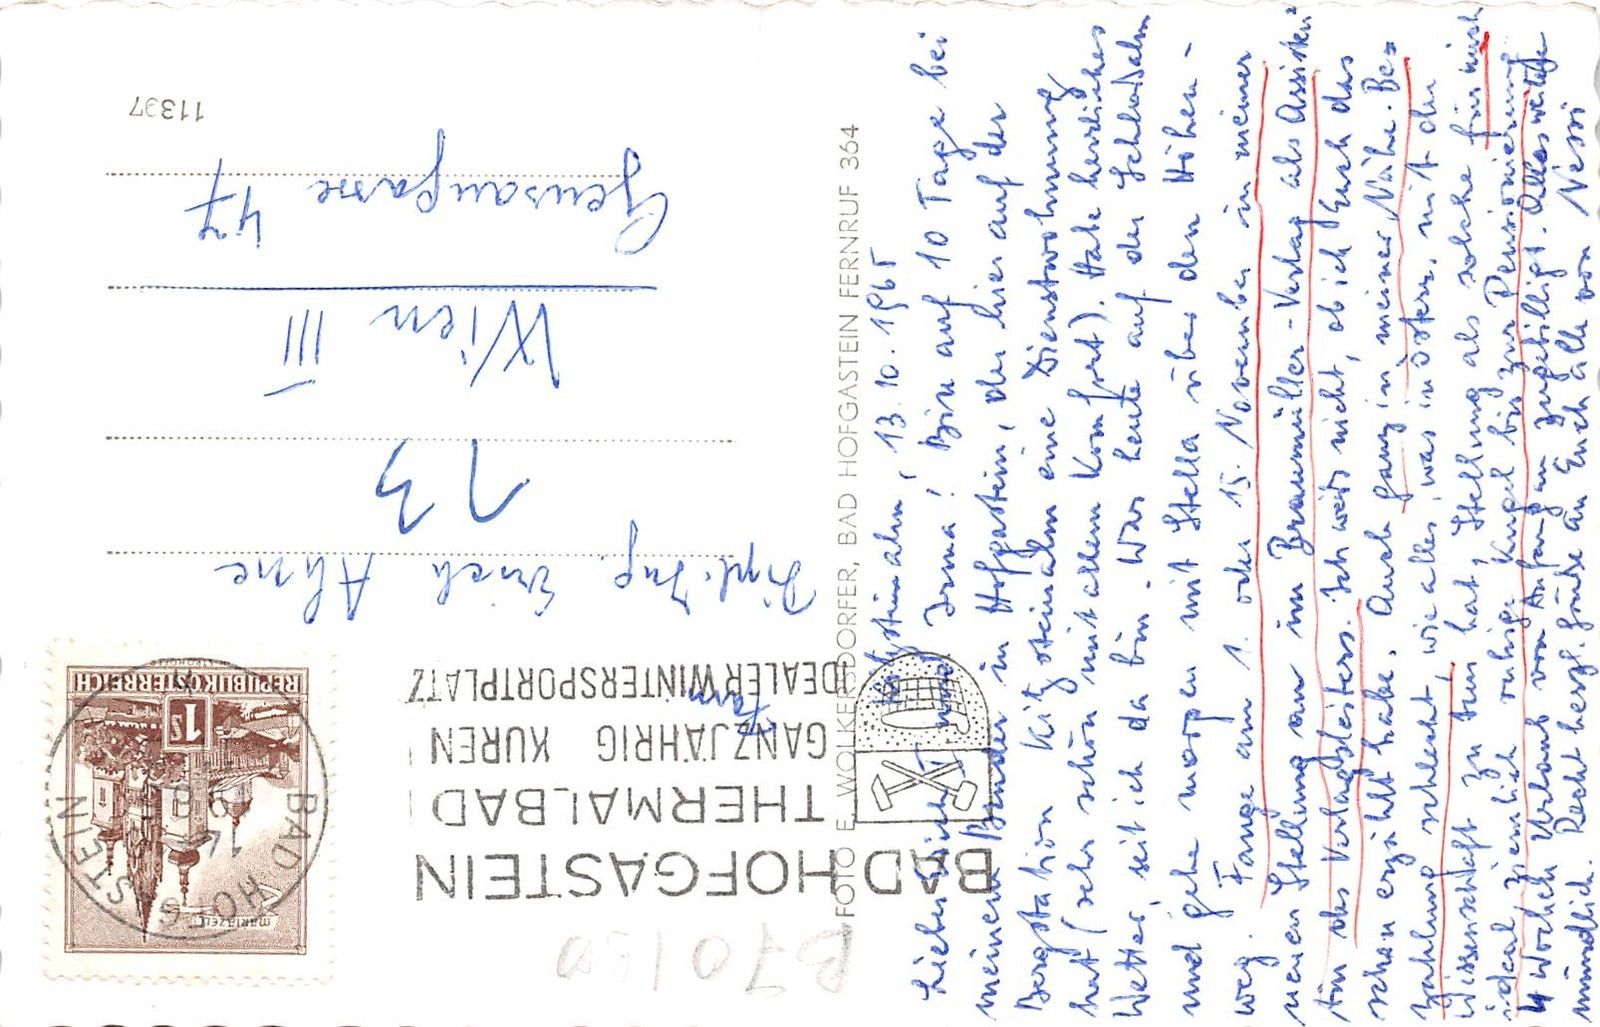 11397
REPUBLIK ÖSTERREICH
1 S
MARIAZELL
BAD HOFGASTEIN
BAD HOFGASTEIN
THERMALBAD
GANZJÄHRIG KUREN
IDEALER WINTERSPORTPLATZ
Dipl. Ing. Erich Ahne
13
Wien III
Gensaugasse 47
FOTO E. WOLKERSDORFER, BAD HOFGASTEIN FERNRUF 364
13.10.1965
Lieber Erich und Irma! Bin auf 10 Tage bei
meinem Bruder in Hofgastein, der hier auf der
Bergstation Kitzsteinalm eine Dienstwohnung
hat (sehr schön mit allem Komfort). Habe herrliches
Wetter, seit ich da bin. War heute auf der Schloßalm
und gehe morgen mit Stella über den Höhen-
weg. Fange am 1. oder 15. November in meiner
neuen Stellung an im Braumüller-Verlag als Assisten-
tin des Verlagsleiters. Ich weis nicht, ob ich Euch das
schon erzählt habe. Auch ganz in meiner Nähe. Be-
zahlung schlecht, wie alles, was in Österr. mit der
Wissenschaft zu tun hat, Stellung als solche für mich
ideal, ziemlich ruhige Kugel bis zur Pensionierung
4 Wochen Urlaub von Anfang an zugebilligt. Alles weitere
mündlich. Recht herzl. Grüße an Euch alle von Nessi
B 70/50